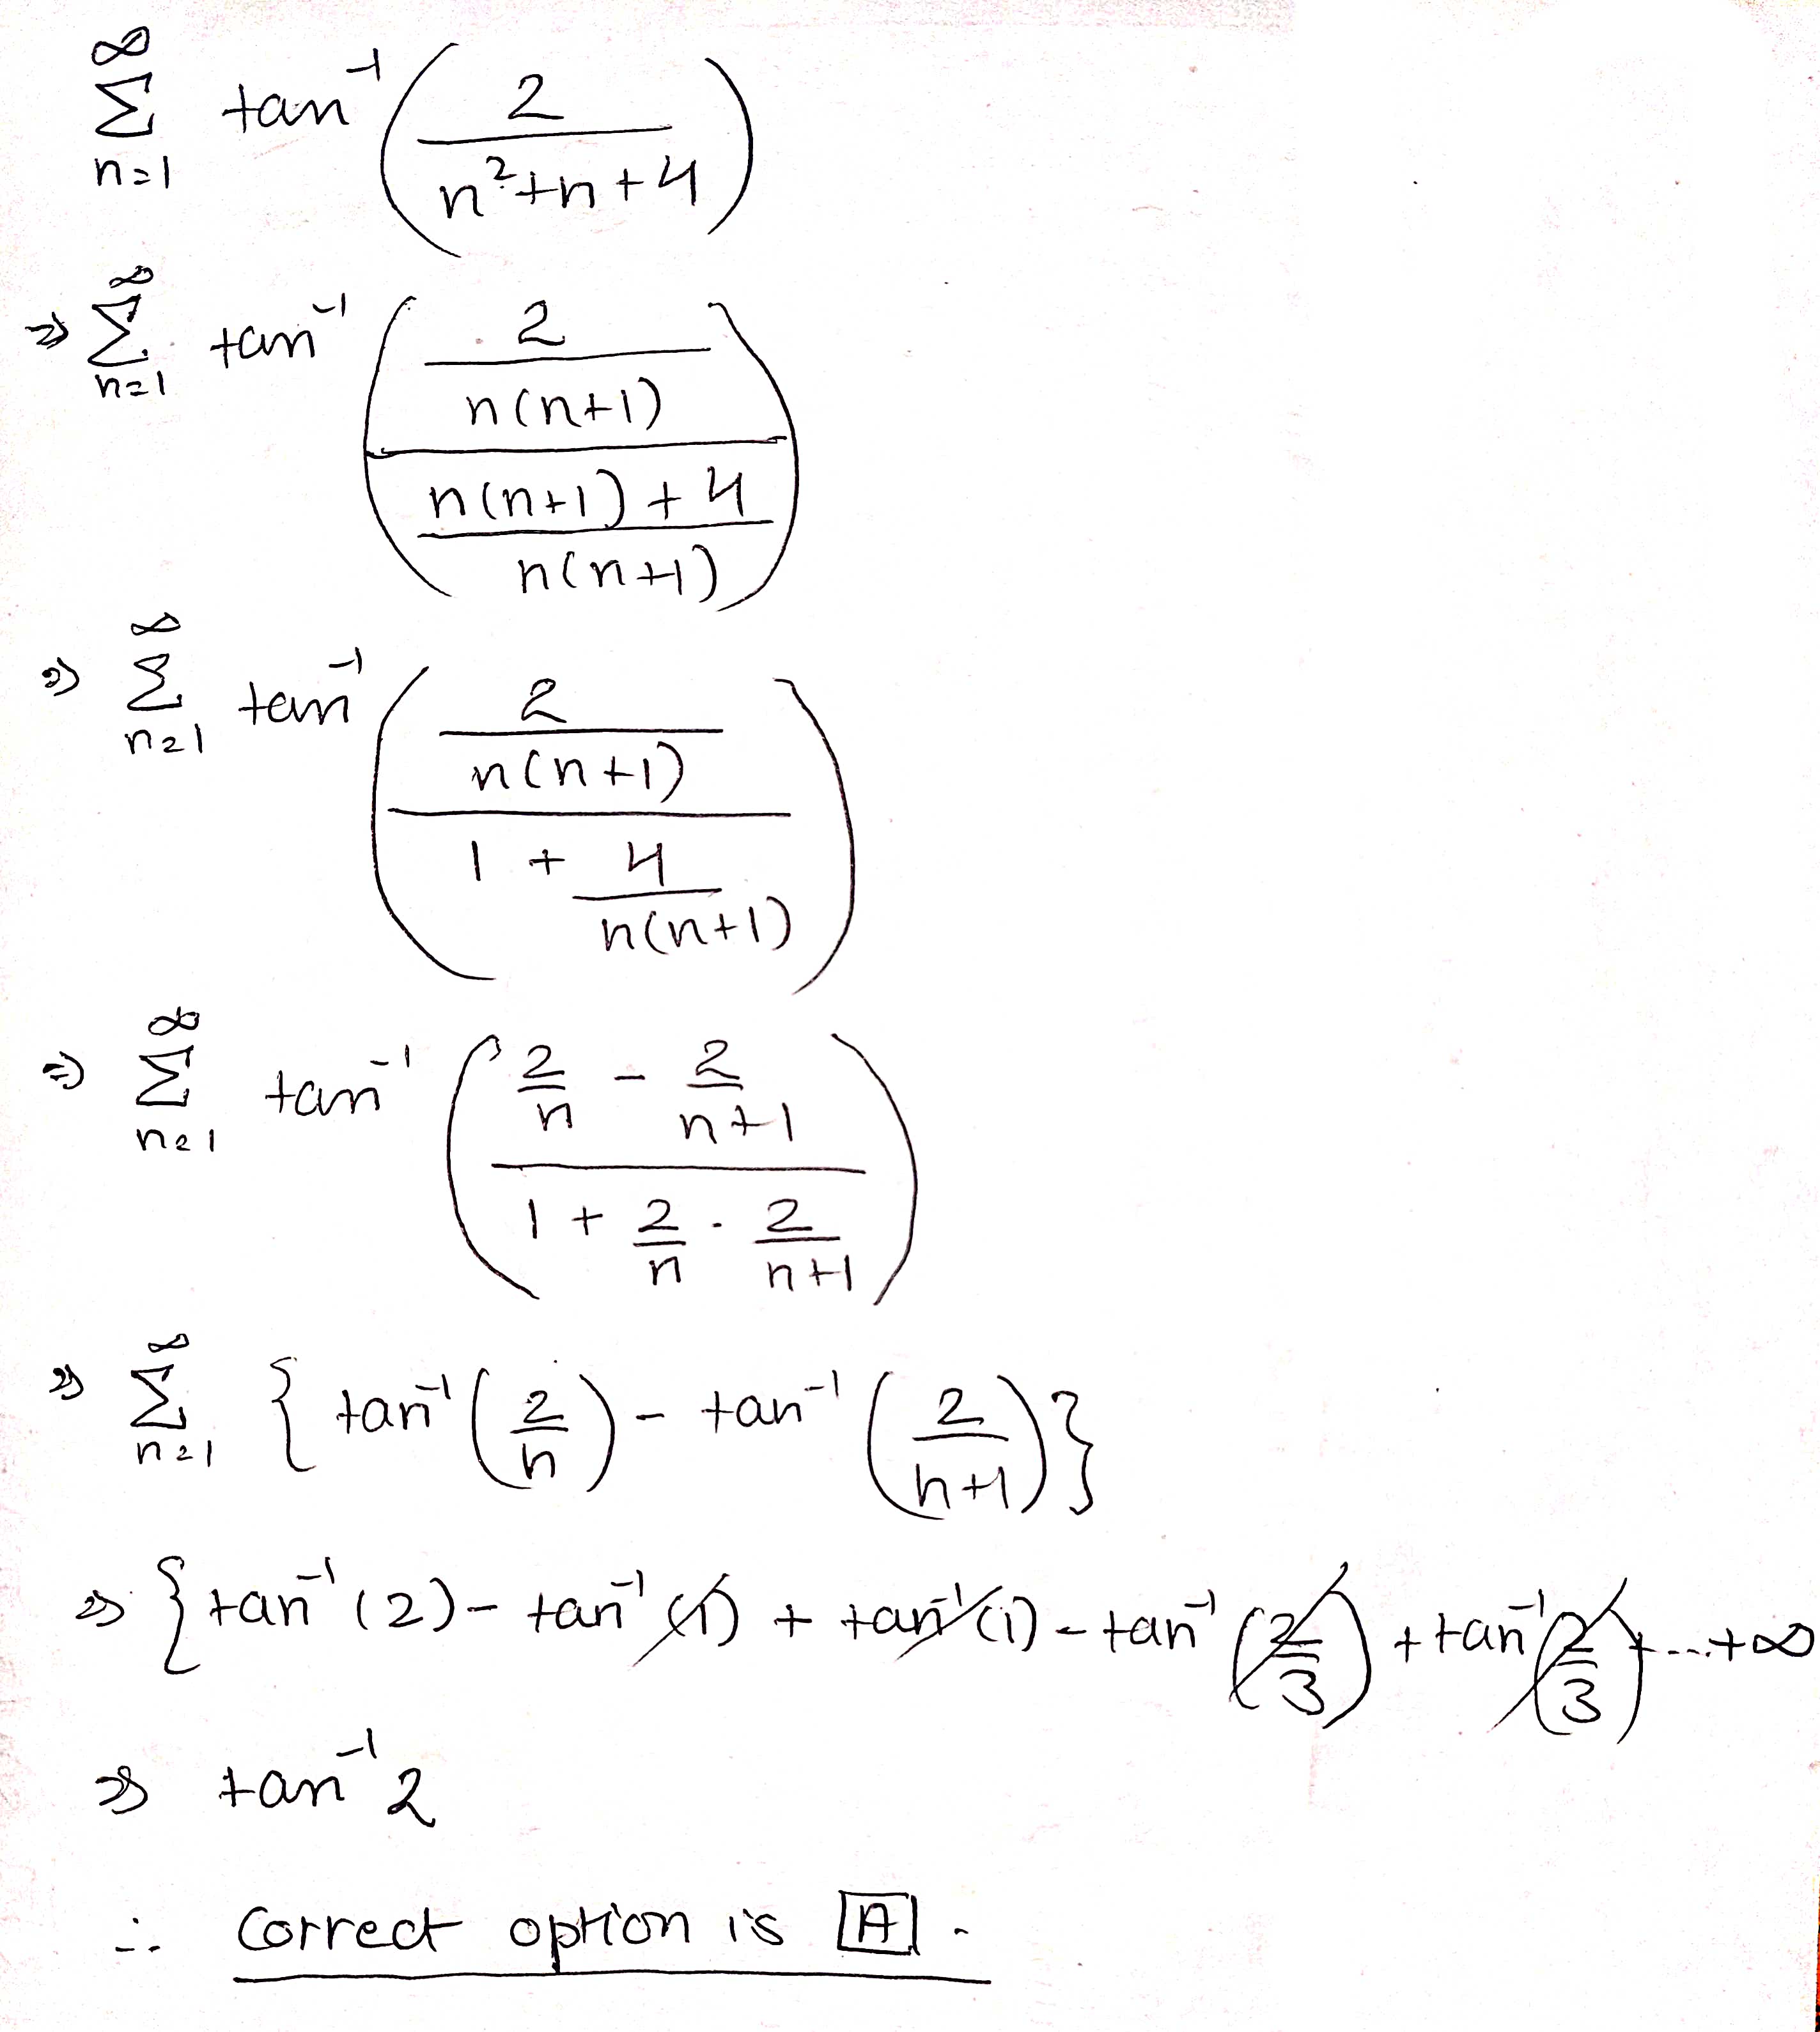 ∞
Σ tan⁻¹ ( 2 / n²+n+4 )
n=1
∞
⇒ Σ tan⁻¹ ( 2 / n(n+1) / n(n+1)+4 / n(n+1) )
n=1
∞
⇒ Σ tan⁻¹ ( 2 / n(n+1) / 1 + 4 / n(n+1) )
n=1
∞
⇒ Σ tan⁻¹ ( 2/n - 2/n+1 / 1 + 2/n . 2/n+1 )
n=1
∞
⇒ Σ { tan⁻¹ (2/n) - tan⁻¹ (2/n+1) }
n=1
⇒ { tan⁻¹ (2) - tan⁻¹ (1) + tan⁻¹ (1) - tan⁻¹ (2/3) + tan⁻¹ (2/3) + .... + ∞
⇒ tan⁻¹ 2
∴ Correct option is A .